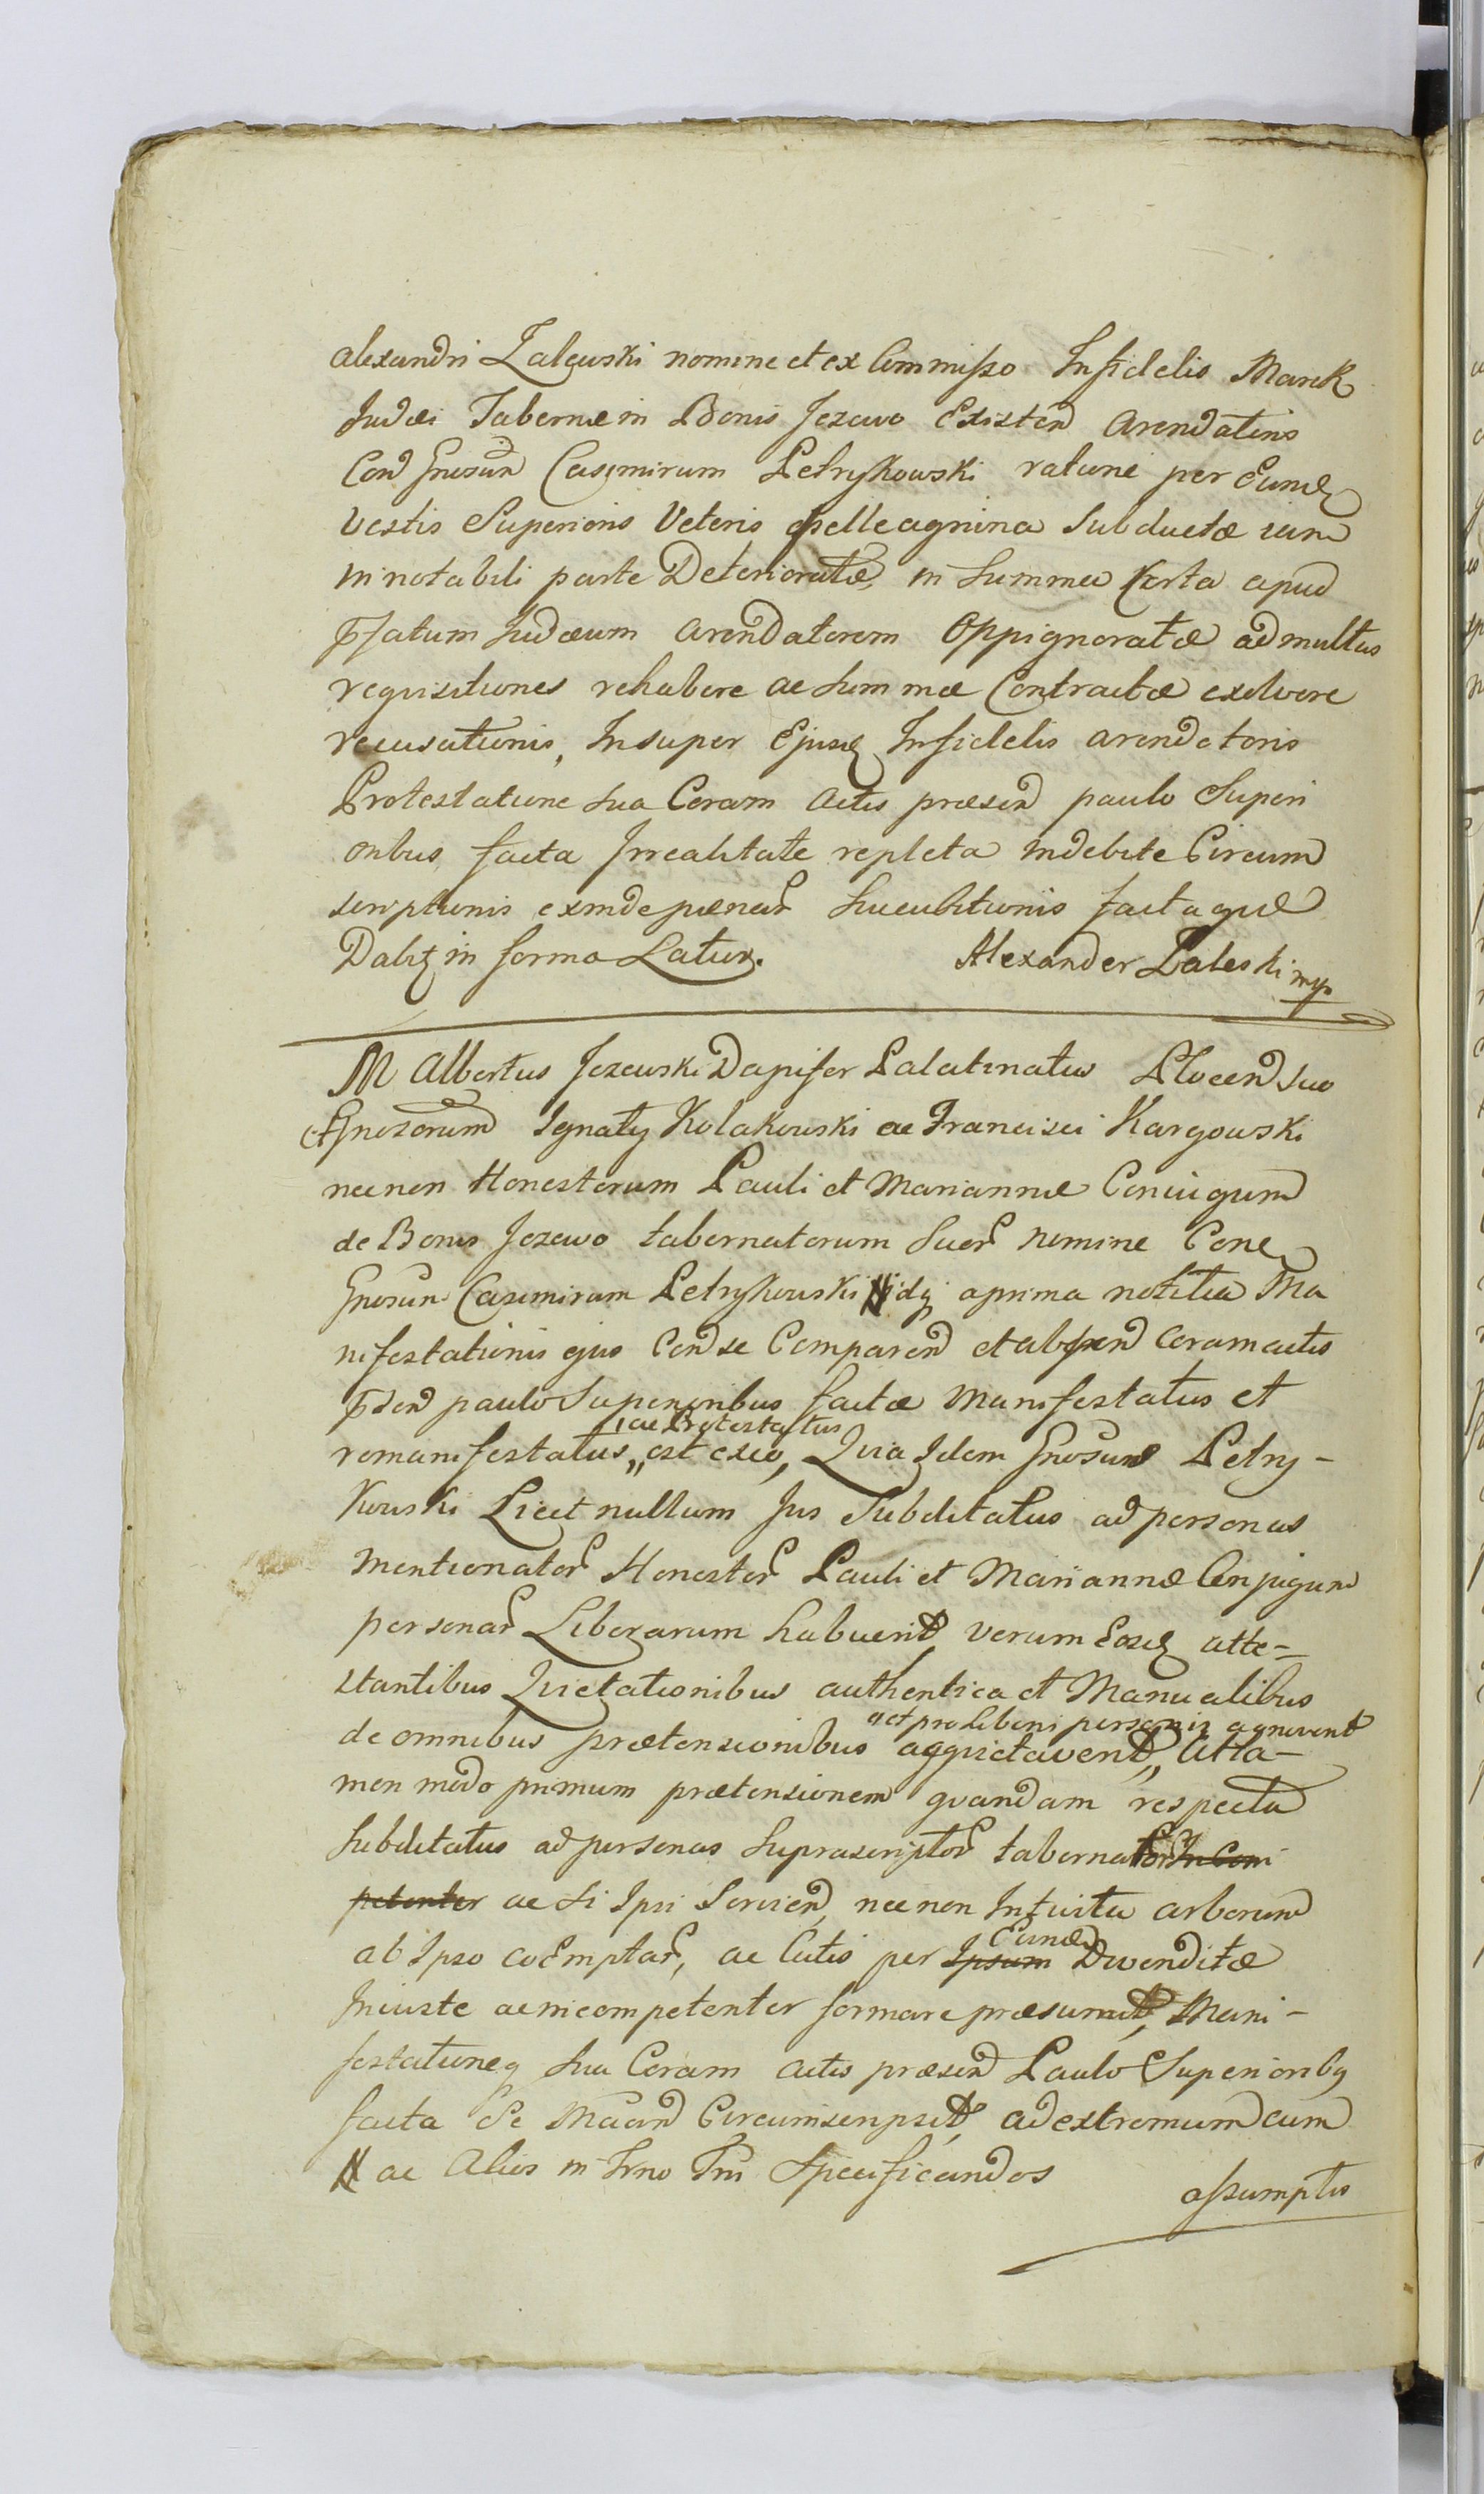 Alexandri Zalewski nomine et ex Commisso Infidelis Marek
Judæi Tabernæ in Bonis Jezewo Existen Arendatoris
Con Gnosum Casimirum Petrykowski ratione per Eund
Vestis Superioris Veteris pelle agnina Subductæ iam
in notabili parte Deterioratæ, in Summa Certa apud
Pfatum Judæum Arendatorem Oppignoratæ ad multas
requisitiones rehabere ac Summæ Contractæ exolvere
recusationis, Insuper Ejusd Infidelis Arendatoris
Protestatione Sua Coram Actis præsen paulo Superi
oribus facta Irrealitate repleta indebite Circum
scriptionis exinde pænar Succubitionis facta que
Dabit in forma Latior.
Alexander Zaleski mp
M Albertus Jezewski Dapifer Palatinatus Plocen suo
et Gnosorum Ignaty Kolakowski ac Francisci Kargowski
necnon Honestorum Pauli et Mariannæ Coniugum
de Bonis Jezewo tabernatorum Suor nomine Con
Gnosum Casimirum Petrykowski idq a prima notitia Ma
nifestationis ejus Con se Comparen et absen Coram actis
pden paulo Superioribus factæ Manifestatus et
ac Protestatus
remanifestatus,, est exeo, Quia Idem Gnosus Petry-
kowski Licet nullum Jus Subditatus ad personas
Mentionator Honestor Pauli et Mariannæ Conjugum
personar Liberarum habuerit, verum Eosd atte-
stantibus Quietationibus authentica et Manualibus
,, et pro Liberis personis agnoverit
de omnibus prætensionibus aqquietaverit,, Atta-
men modo primum prætensionem quandam respectu
Subditatus ad personas Suprascriptor tabernator In Com
petenter ac Si Ipsi Servien, necnon Intuitu arborum
Eund
ab Ipso coEmptar, ac Cutis per Ipsum Divenditæ
Injuste ac incompetenter formare præsumit, Mani-
festationeq Sua Coram Actis præsen Paulo Superiorib9
facta Se Mcan Circumscripsit, ad extremum cum
N ac Alios in Trno Tri Specificandos
assumptis